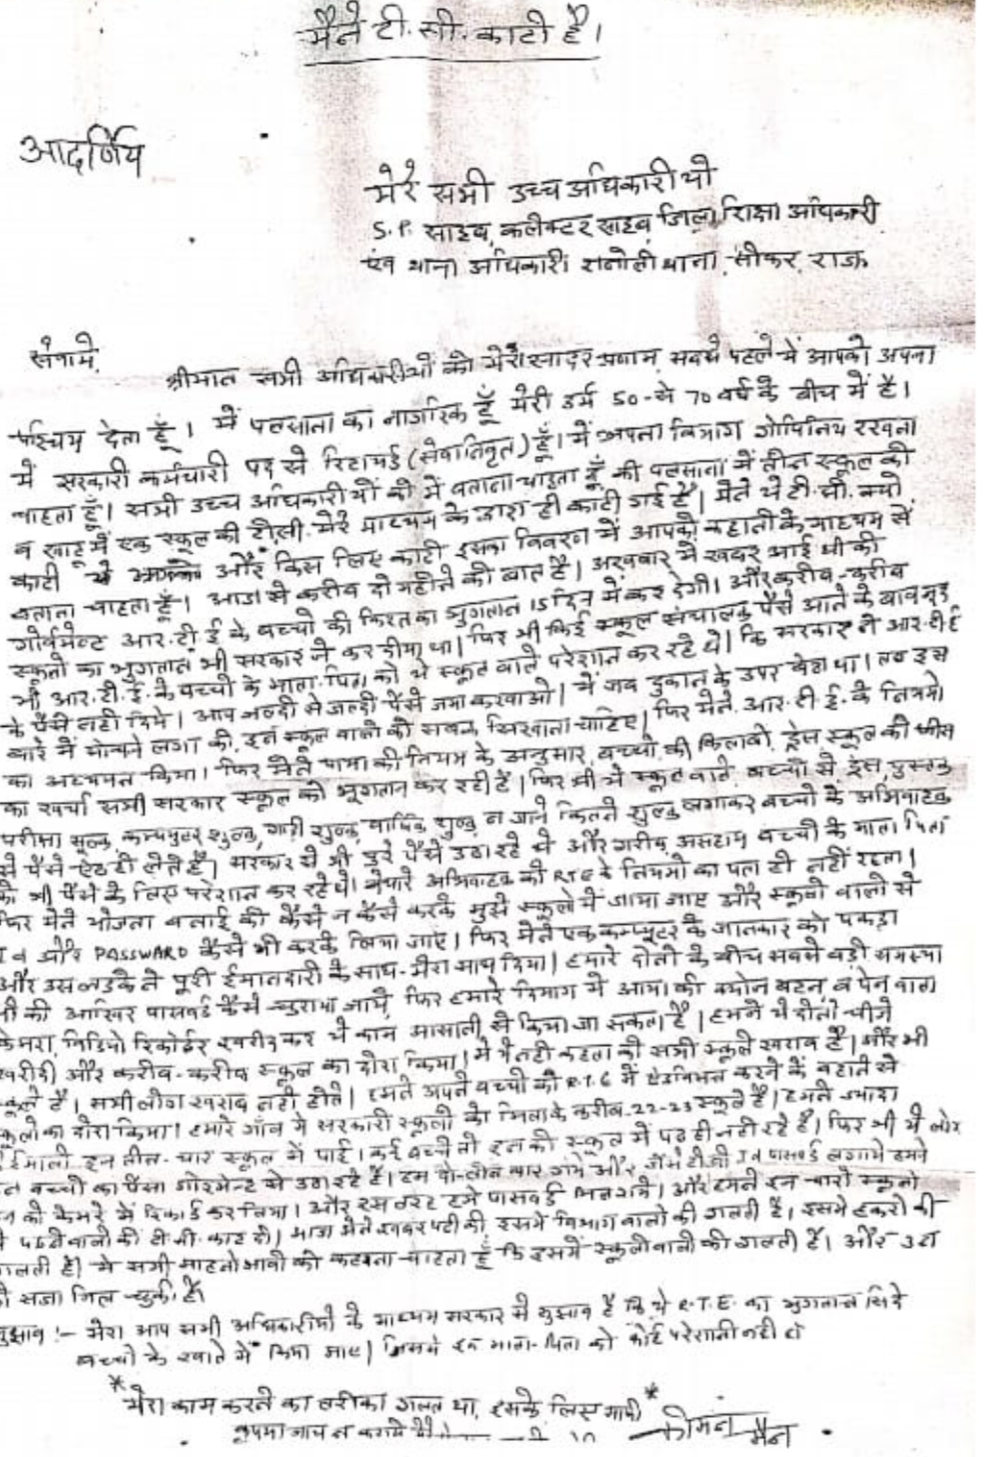 मैने टी.सी. काटी है।
आदर्णिय
मेरे सभी उच्च अधिकारी यो
S.P. साहब, कलेक्टर साहब जिला शिक्षा अधिकारी
एंव थाना अधिकारी रानोली थाना, सीकर, राज
श्रीमान सभी अधिकारीयों को मेरा सादर प्रणाम, सबसे पहले में आपको अपना
परिचय देता हूँ। में पलसाना का नागरिक हूँ मेरी उर्म 50-से 70 वर्ष के बीच में है।
में सरकारी कर्मचारी पद से रिटायर्ड (सेवानिवृत) हूँ। में अपना विभाग गोपिनिय रखना
चाहता हूँ। सभी उच्च अधिकारीयों को में बताना चाहता हूँ की पलसाना में तीन स्कूल की
व खाटू में एक स्कूल की टी.सी. मेरे माध्यम के द्वारा ही काटी गई है। मेने ये टी.सी. क्यो
काटी और किस लिए काटी इसका विवरण में आपको कहानी के माध्यम से
बताना चाहता हूँ। आज से करीब दो महीने की बात है। अखबार में खबर आई थी की
गोर्वमेन्ट आर.टी.ई के बच्चो की किश्त का भुगतान 15 दिन में कर देगी। और करीब-करीब
स्कूलो का भुगतान भी सरकार ने कर दीया था। फिर भी कई स्कूल संचालक पैसे आने के बावजूद
भी आर.टी.ई. के बच्चो के माता-पिता को ये स्कूल वाले परेशान कर रहे थे। कि सरकार ने आर.टी.ई
के पैसे नही दिये। आप जल्दी से जल्दी पैसे जमा करवाओ। में जब दुकान के उपर बेठा था। तब इस
बारे में सोचने लगा की, इन स्कूल वालो को सबक सिखाना चाहिए। फिर मेने आर.टी.ई. के नियमो
का अध्ययन किया। फिर मेने पाया की नियम के अनुसार, बच्चो की किताबो, ड्रेस स्कूल की फीस
का खर्चा सभी सरकार स्कूल को भूगतान कर रही है। फिर भी ये स्कूल वाले बच्चो से ड्रेस, पुस्तक
परीक्षा शुल्क, कम्प्युटर शुल्क, गाडी शुल्क, वार्षिक शुल्क न जाने कितने शुल्क लगाकर बच्चो के अभिवाहक
से पैसे ऐठ ही लेते है। सरकार से भी पुरे पैसे उठा रहे थे और गरीब, असहाय बच्चो के माता पिता
को भी पैसे के लिए परेशान कर रहे थे। बेचारे अभिवाहक को RTE के नियमो का पता ही नहीं रहता।
फिर मेने योजना बनाई की कैसे न कैसे करके मुझे स्कूलो में जाया जाए और स्कूलो वालो से
और PASSWARD कैसे भी करके लिया जाए। फिर मेने एक कम्प्यूटर के जानकार को पकडा
और उस लडके ने पूरी ईमानदारी के साथ मेरा साथ दिया। हमारे दोनो के बीच सबसे बडी समस्या
थी की आखिर पासवर्ड कैसे चुराया जाये, फिर हमारे दिमाग में आया की क्योन बटन व पेन वाला
केमरा, विडियो रिकोर्डर खरीद कर ये काम आसानी से किया जा सकता है। हमने ये दोनो चीजे
खरीदी और करीब-करीब स्कूल का दोरा किया। में ये नही कहता की सभी स्कूले खराब है। और भी
स्कूले है। सभी लोग खराब नही होते। हमने अपने बच्चो को R.T.E में एडमिशन करने के बहाने से
स्कूलो का दोरा किया। हमारे गाँव मे सरकारी स्कूलो को मिलाके करीब 22-23 स्कूले है। हमने ज्यादा
इन तीन-चार स्कूल में पाई। कई बच्चे तो इन की स्कूल में पढ ही नही रहे है। फिर भी ये लोग
बच्चो का पैसा गोरमेन्ट से उठा रहे है। हम दो-तीन बार गये और जैसे ही पासवर्ड लगाये हमने
को केमरे में रिकार्ड कर लिया। और हमे पासवर्ड मिल गये। और हमने इन चारो स्कूलो
वालो की टी.सी. काट दी। आज मेने खबर पढी की इसमे विभाग वालो की गलती है। इसमे हेकरो की
गलती है। में सभी महानोभावो को कहना चाहता हूँ कि इसमें स्कूलो वालो की गलती है। और उन
सजा मिल चुकी है।
सुझाव :- मेरा आप सभी अधिकारीयो के माध्यम सरकार से सुझाव है कि ये R.T.E. का भुगतान सिधे
बच्चो के खाते में किया जाए। जिससे इन माता-पिता को कोई परेशानी नही हो
*मेरा काम करने का तरीका गलत था, इसके लिए माफी*
कॉमन मैन